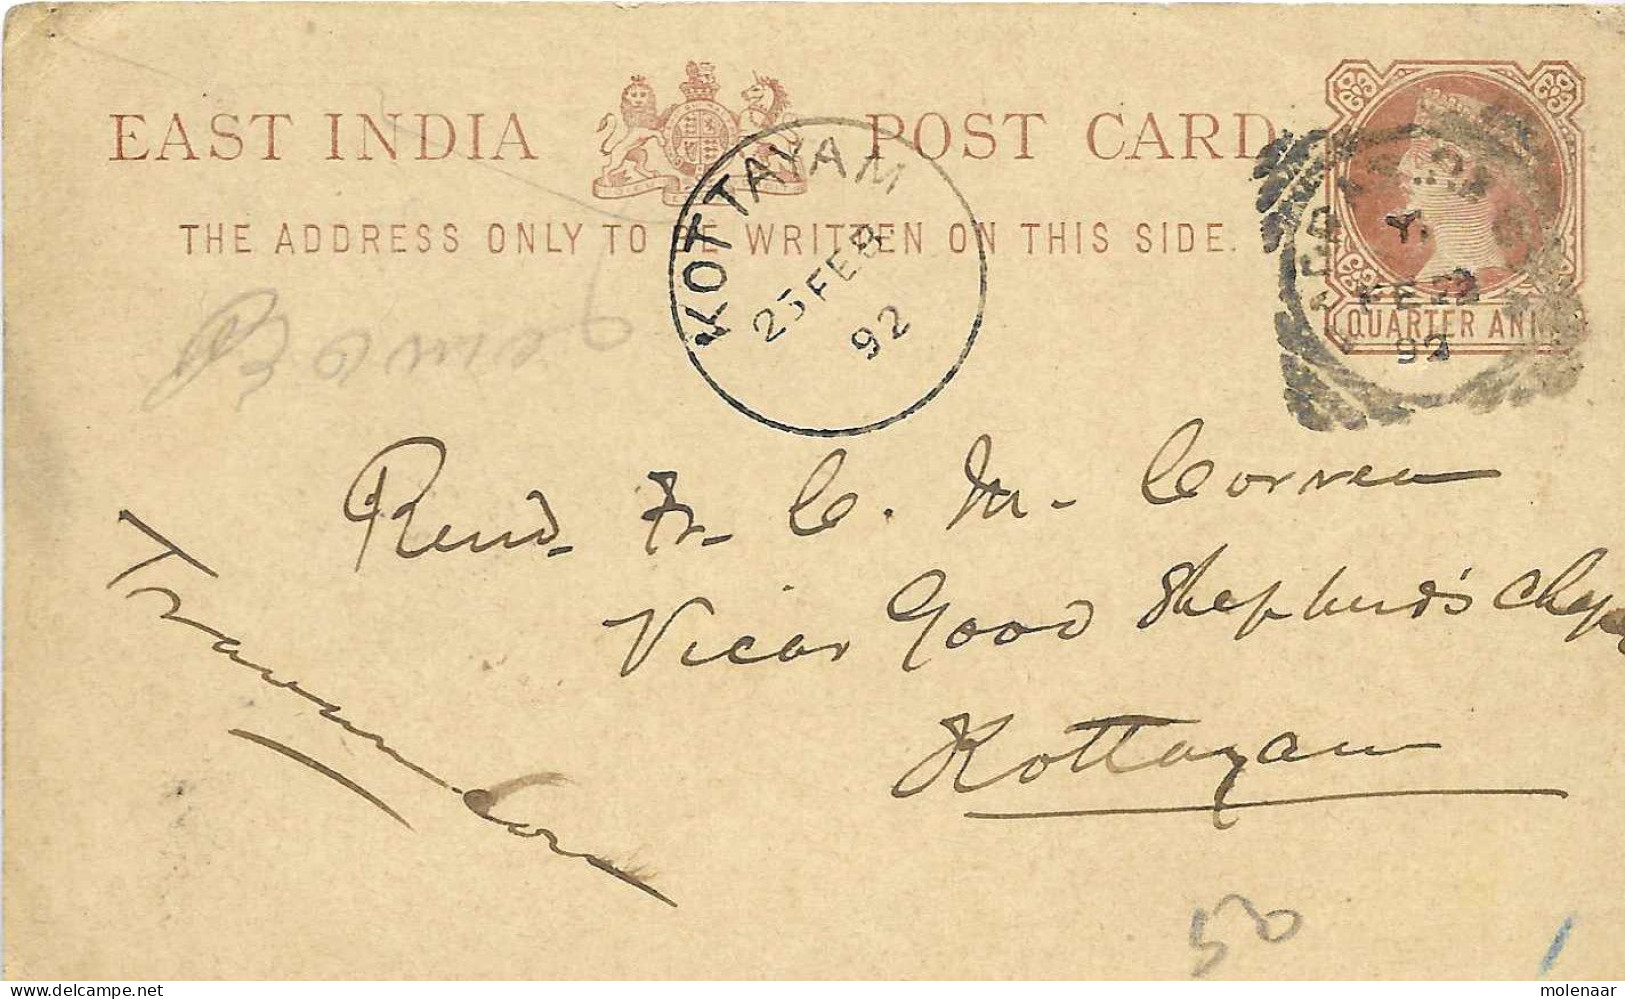 EAST INDIA POST CARD
THE ADDRESS ONLY TO BE WRITTEN ON THIS SIDE.
QUARTER ANNA
KOTTAYAM
25 FEB
92
Y.
FE 22
92
Revd. Fr. C. M. Correa
Vicar Good Shepherd's Chap
Kottayam
Travancore
50
molenaar